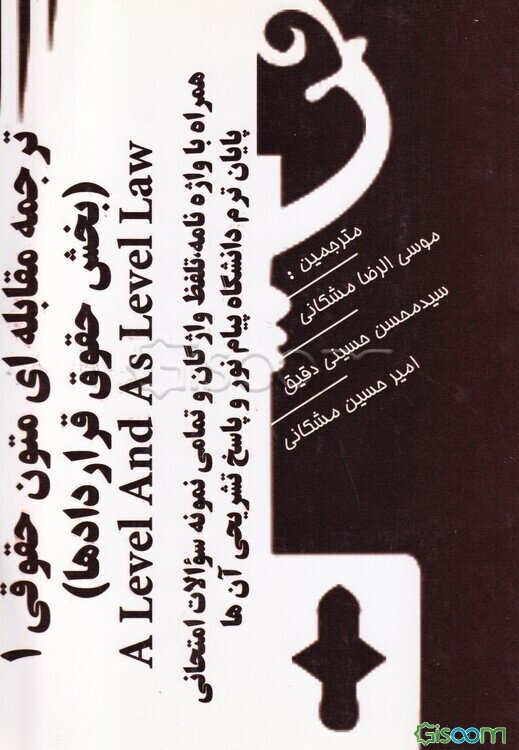 ترجمه مقابله ای متون حقوقی ۱
(بخش حقوق قراردادها)
A Level And As Level Law
همراه با واژه نامه، تلفظ واژگان و تمامی نمونه سؤالات امتحانی
پایان ترم دانشگاه پیام نور و پاسخ تشریحی آن ها
مترجمین :
موسی الرضا مشکانی
سیدمحسن حسینی دقیق
امیر حسین مشکانی
Gisoom
Gisoom